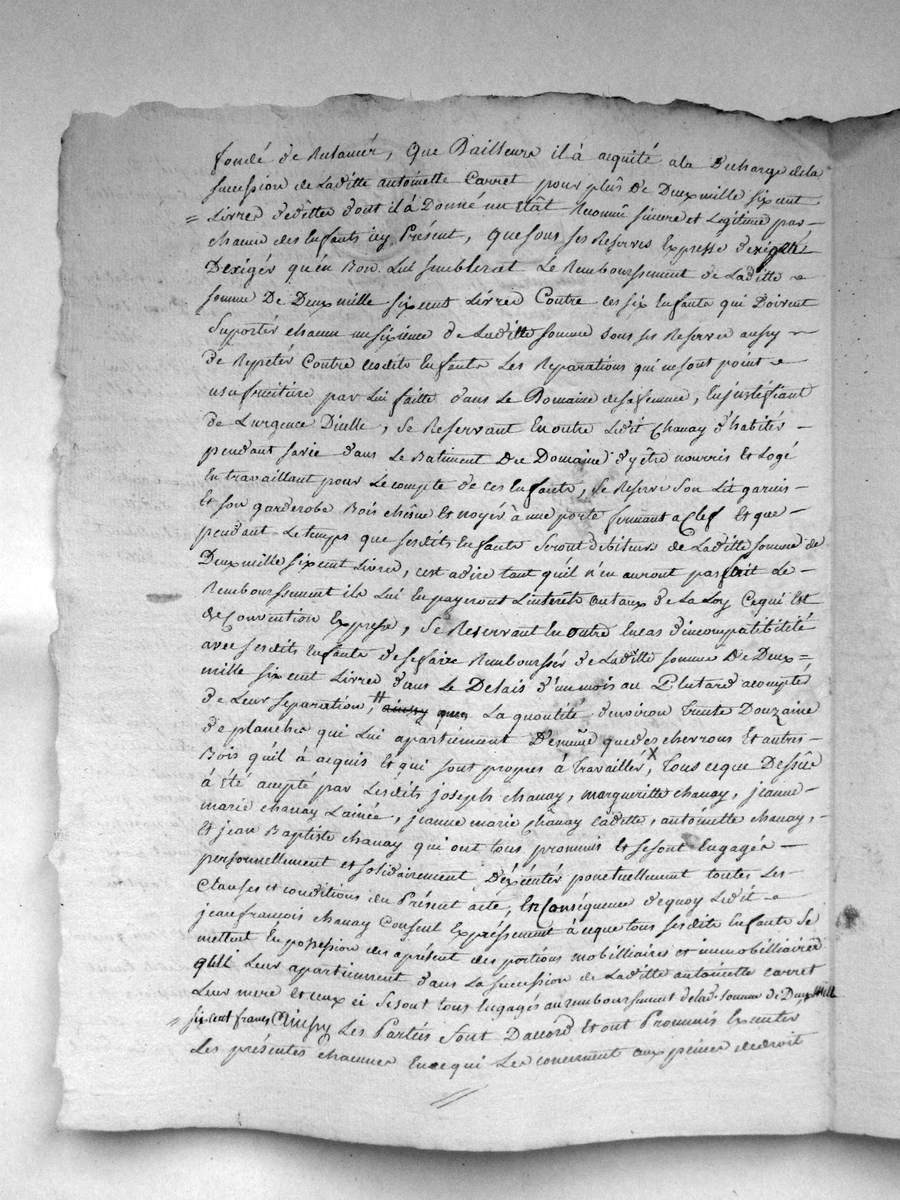 fondé de Reclamér, que Dailleurs il à aquité ala Decharge dela
succession de Laditte antoinette Carret pour plûs de Deux mille six cent
Livres dedettes dont il à Donné un êtât Reconnû sincere et Legitime par
chacun des Enfants icy Présent, que sous ses Reserves Expresse d'exigér
D'exigér qu'en Bon Lui semblerat Le Remboursement de Laditte
somme De Deux mille six cent Livres Contre ces six Enfants qui Doivent
supportér chacun un sixieme de Laditte somme sous ses Reserves aussy
de Repetér Contre cesdits Enfants Les Reparations qui ne sont point
usufruitiere par Lui faitte dans Le Domaine desa femme, En justifiant
de L'urgence D'icelle, se Reservant En outre Ledit chanay d'habitér
pendant sa vie dans Le Batiment Du Domaine d'y être nourris et Logé
En travaillant pour Le compte de ces Enfants, se Reserve son Lit garnis
et son garderobe Bois chêsne et noyér à une porte fermant a Clef et que
pendant Le temps que sesdits Enfants seront debiteurs de Laditte somme de
Deux mille six cent Livres, cest adire tant qu'il n'en auront pas fait Le
Remboursement ils Lui En payeront L'interêts au taux de La Loy Ce qui Est
de Convention Expresse, se Reservant En outre En cas d'incompatibilité
avec sesdits Enfants de se faire Remboursér de Laditte somme De Deux
mille six cent Livres dans Le Delais d'un mois au Plutard acompté
de Leur separation, # La quontité d'environ trente Douzaine
de planches qui Lui apartienent De même que des chevrons Et autres
Bois qu'il à acquis et qui sont propres à travaillér, x Tous ceque Dessûs
à été acepté par Lesdits joseph chanay, margueritte chanay, jeanne
marie chanay L'ainée, jeanne marie chanay Cadette, antoinette chanay,
et jean Baptiste chanay qui ont tous prommis et se sont Engagés
personnellement et solidairement D'éxécuter ponctuellement toutes Les
Clauses et conditions du Présent acte, En Conséquence de quoy Ledit
jean françois chanay Consent Expréssement à ceque tous sesdits Enfants se
mettent En possession des aprésent des portions mobilliaires et immobilliaires
qui Leur apartiennent dans La succession de Laditte antoinette carret
Leur mere et ceux ci se sont tous Engagés au remboursement de lad. somme de Deux Mille
six cent francs Ainssy Les Parties sont Daccord et ont Prommis Executer
Les présentes chacunes En ce qui Les concernent aux peines de droit